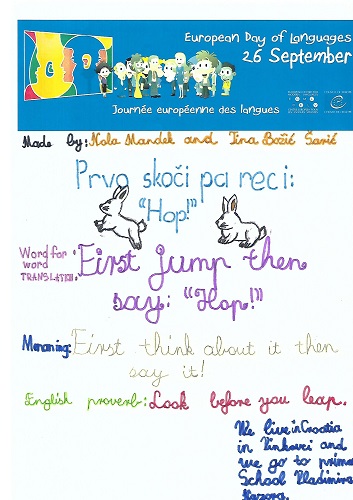 European Day of Languages
26 September
Journée européenne des langues
Made by: Nola Mandek and Tina Božić Šarić
Prvo skoči pa reci:
"Hop!"
Word for
word
TRANSLATION:
First jump then
say: "Hop!"
Meaning: First think about it then
say it!
English proverb: Look before you leap.
We live in Croatia
in Vinkovci and
we go to prima
School Vladimira
Nazora.